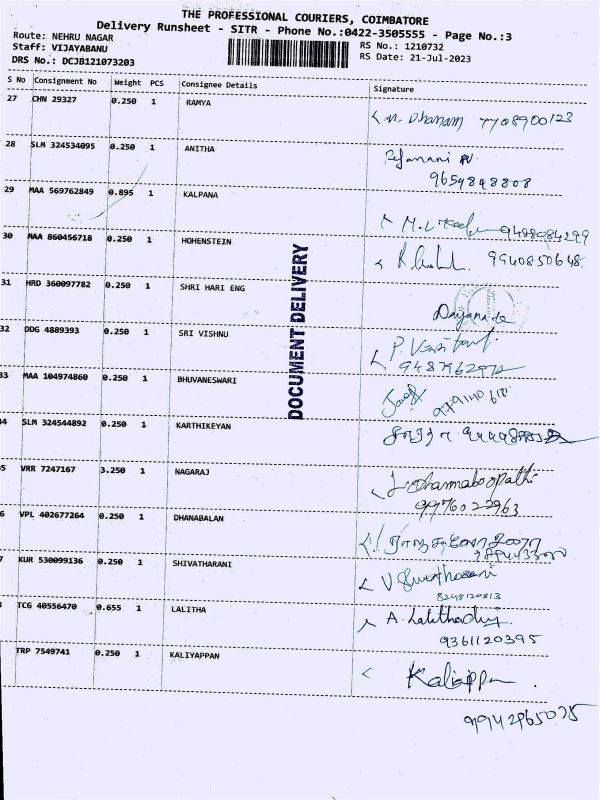 THE PROFESSIONAL COURIERS, COIMBATORE
Delivery Runsheet - SITR - Phone No.:0422-3505555 - Page No.:3
Route: NEHRU NAGAR
Staff: VIJAYABANU
DRS No.: DCJB121073203
RS No.: 1210732
RS Date: 21-Jul-2023
S No Consignment No Weight PCS Consignee Details Signature
27 CHN 29327 0.250 1 RAMYA
M. Dhanam 7708900123
28 SLM 324534095 0.250 1 ANITHA
9659848808
29 MAA 569762849 0.895 1 KALPANA
9488084299
30 MAA 860456718 0.250 1 HOHENSTEIN
9940850648
31 HRD 360097782 0.250 1 SHRI HARI ENG
32 DDG 4889393 0.250 1 SRI VISHNU
DOCUMENT DELIVERY
33 MAA 104974860 0.250 1 BHUVANESWARI
34 SLM 324544892 0.250 1 KARTHIKEYAN
5 VRR 7247167 3.250 1 NAGARAJ
J. Dharmaboopathi
9976022963
6 VPL 402677264 0.250 1 DHANABALAN
7 KUR 530099136 0.250 1 SHIVATHARANI
8248120813
TCG 40556470 0.655 1 LALITHA
A. Lalithadevi
9361120395
TRP 7549741 0.250 1 KALIYAPPAN
Kaliappan